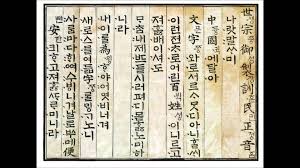 世宗御製訓民正音
나랏말ᄊᆞ미
中國에달아
文字와로서르ᄉᆞᄆᆞᆺ디아니ᄒᆞᆯᄊᆡ
이런젼ᄎᆞ로어린百姓이니르고
져홇배이셔도
ᄆᆞᄎᆞᆷ내제ᄠᅳ들시러펴디몯ᄒᆞᇙ노미하
니라
내이ᄅᆞᆯ爲ᄒᆞ야어엿비너겨
새로스믈여듧字ᄅᆞᆯᄆᆡᇰᄀᆞ노니
사ᄅᆞᆷ마다ᄒᆡᅇᅧ수ᄫᅵ니겨날로ᄡᅮ메便
安킈ᄒᆞ고져ᄒᆞᇙᄯᆞᄅᆞ미니라